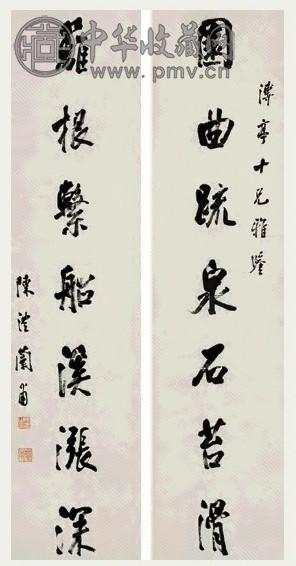 中华收藏网
www.pmv.cn
溥亭十兄雅鑒
園曲疏泉石苔滑
籬根繫船溪漲深
陳澧蘭甫